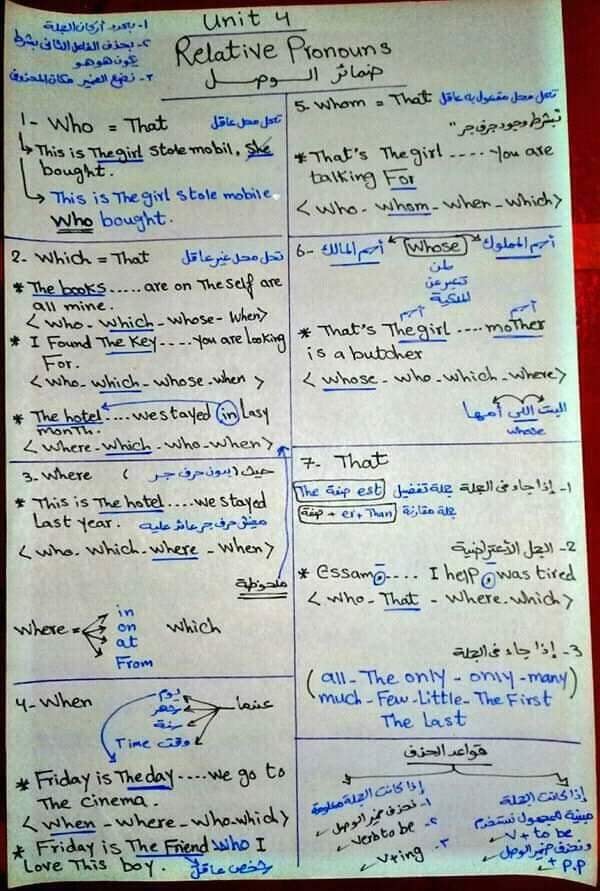 Unit 4
Relative Pronouns
ضمائر الوصل
١- بحدد أركان الجملة
٢- بحذف الفاعل الثانى بشرط
يكون هو هو
٣- نضع الضمير مكان المحذوف
1- Who = That تحل محل عاقل
This is The girl stole mobil, She
bought.
This is The girl stole mobile
Who bought.
2- Which = That تحل محل غير عاقل
* The books ..... are on The Self are
all mine.
< who - which - whose - When >
* I Found The Key .... you are looking
For.
< who - which - whose - when >
* The hotel .... we stayed in Lasy
month.
< where - which - who - when >
3- Where ( حيث (بدون حرف جر
* This is The hotel .... we stayed
Last year. مفيش حرف جر عائد عليه
< who - which - where - When >
ملحوظة
Where =
in
on
at
From
Which
4- When
عندما
يوم
شهر
سنة
وقت Time
* Friday is The day .... we go to
The cinema.
< when - where - who - which >
* Friday is The Friend Who I
Love This boy. شخص عاقل
5. Whom = That تحل محل مفعول به عاقل
"بشرط وجود حرف جر
* That's The girl .... you are
talking For
< who - whom - when - which >
6- اسم المالك Whose اسم المملوك
ملك
تعبر عن
الملكية
اسم اسم
* That's The girl .... moTher
is a butcher
< whose - who - which - where >
البنت اللى أمها
whose
7- That
١- إذا جاء فى الجملة جملة تفضيل The صفة est
جملة مقارنة صفة + er + Than
٢- الجمل الأعتراضية
* Essam, .... I help, was tired
< who - That - where - which >
٣- إذا جاء فى الجملة
( all - The only - only - many
much - Few - Little - The First
The Last )
قواعد الحذف
إذا كانت الجملة معلومة
١- نحذف ضمير الوصل
٢- verb to be
٣- V + ing
إذا كانت الجملة
مبنية للمجهول نستخدم
V + to be
ونحذف ضمير الوصل
+ P.P